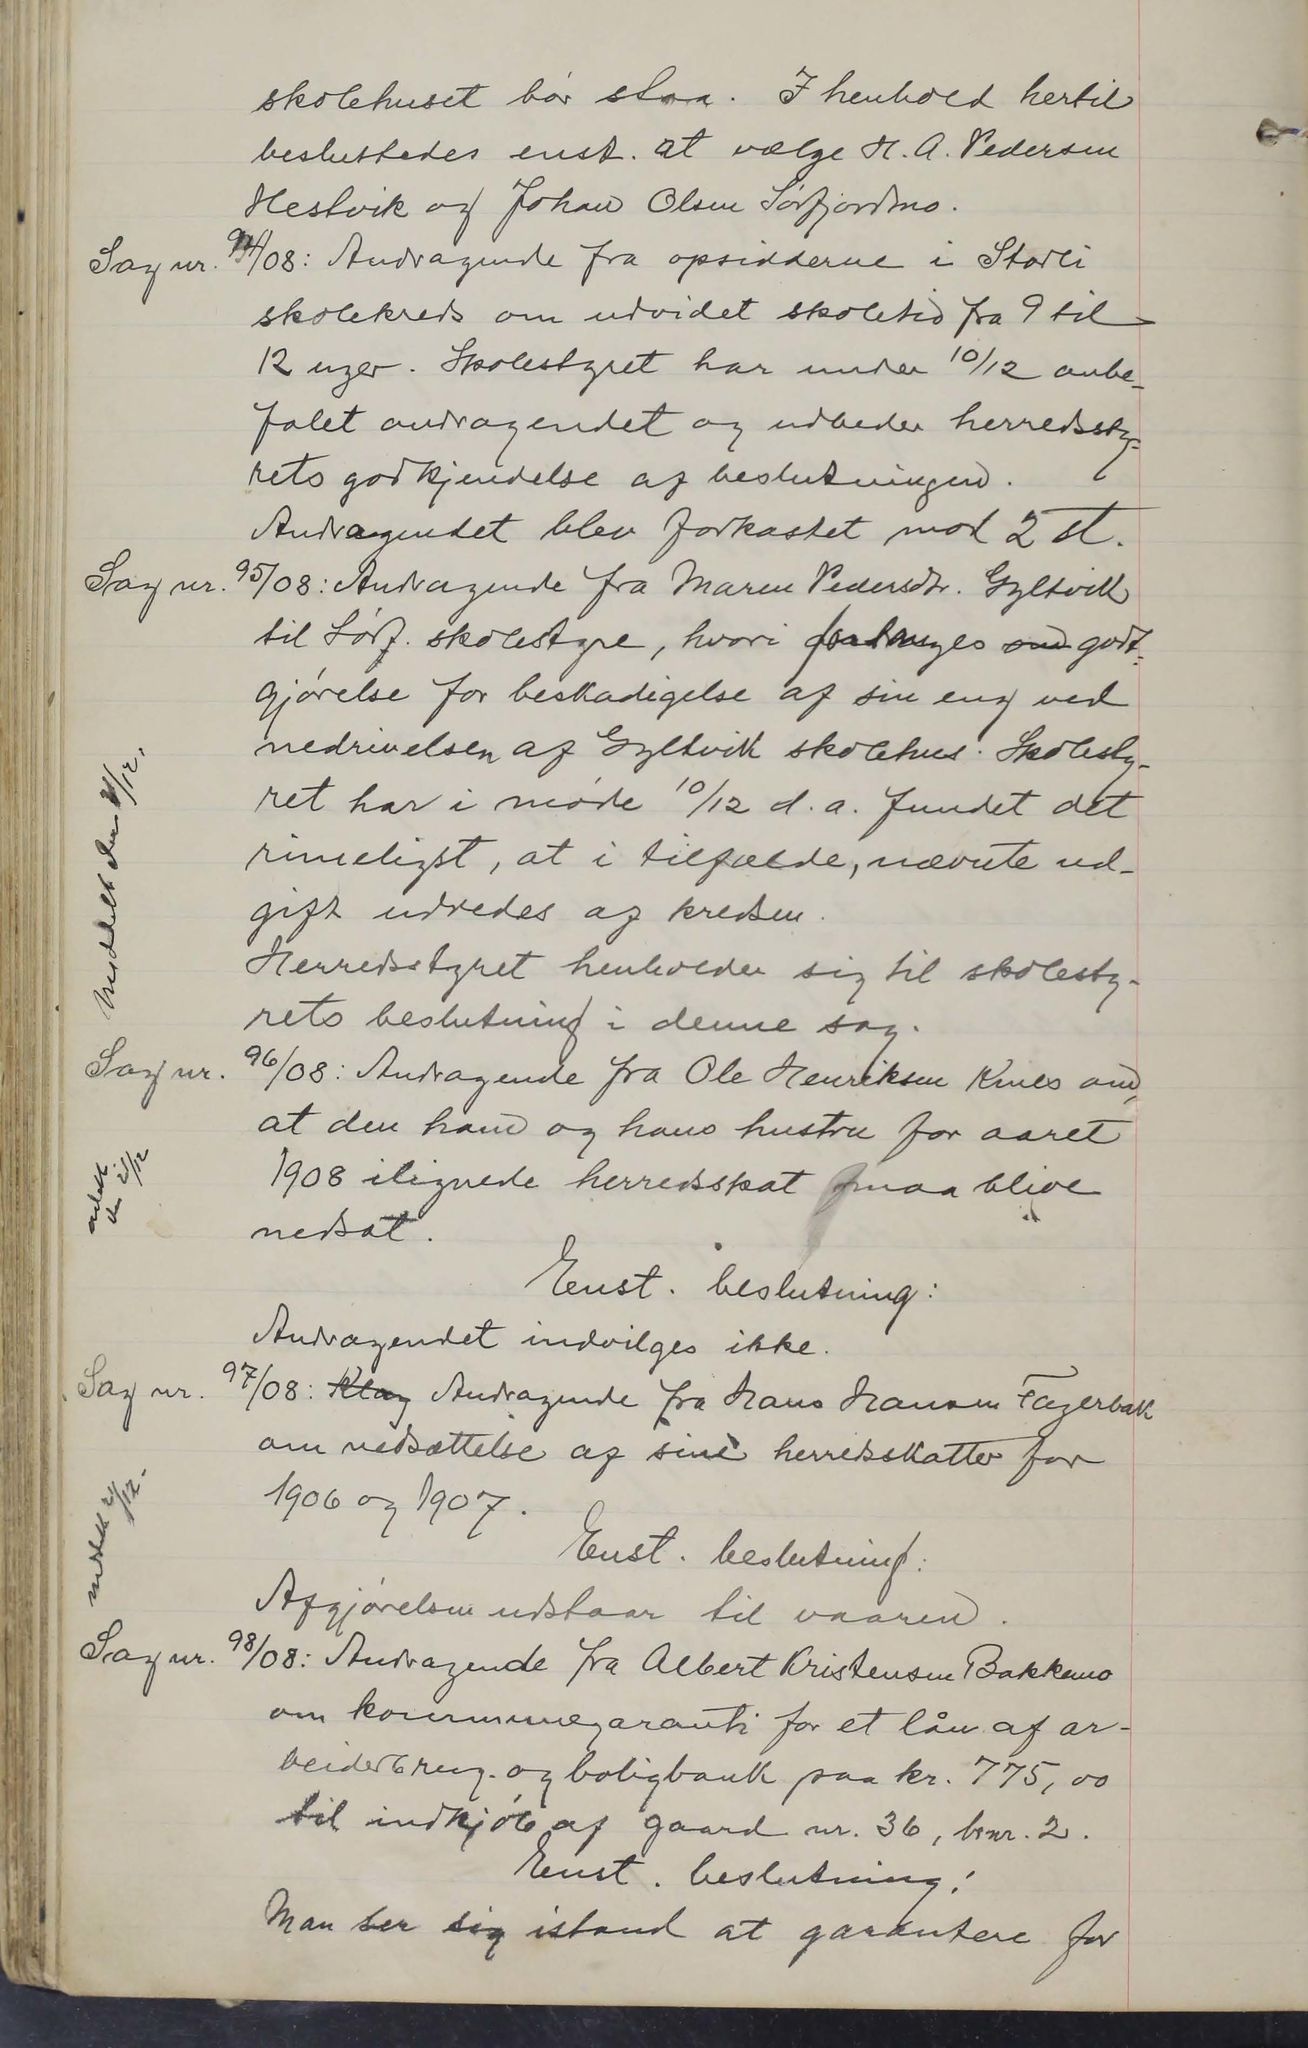 skolehuset bör staa. I henhold hertil
besluttedes enst. at vælge H. A. Pedersen
Hestvik og Johan Olsen Sörfjordmo.
Sag nr. 94/08: Andragende fra opsidderne i Storli
skolekreds om udvidet skoletid fra 9 til
12 uger. Skolestyret har under 10/12 anbe-
falet andragendet og udbeder herredssty-
rets godkjendelse af beslutningen.
Andragendet blev forkastet mod 2 st.
Sag nr. 95/08: Andragende fra Maren Pedersdtr. Gyltvik
til Sörf. skolestyre, hvori forlanges godt-
gjörelse for beskadigelse af sin eng ved
nedrivelsen af Gyltvik skolehus. Skolesty-
ret har i möde 10/12 d. a. fundet det
rimeligst, at i tilfælde, nævnte ud-
gift udredes af kredsen.
Herredsstyret henholder sig til skolesty-
rets beslutning i denne sag.
Meddelt den 21/12.
Sag nr. 96/08: Andragende fra Ole Henriksen Kines om,
at den ham og hans hustru for aaret
1908 ilignede herredsskat maa blive
nedsat.
Enst. beslutning:
Andragendet indvilges ikke.
meddelt den 21/12
Sag nr. 97/08: Klag Andragende fra Hans Hansen Fagerbak
om nedsættelse af sine herredsskatter for
1906 og 1907.
Enst. beslutning:
Afgjörelsen udstaar til vaaren.
meddelt 21/12.
Sag nr. 98/08: Andragende fra Albert Kristensen Bakkemo
om kommunegaranti for et lån af ar-
beiderbrug- og boligbank paa kr. 775,00
til indkjöb af gaard nr. 36, brnr. 2.
Enst. beslutning:
Man ser sig istand at garantere for